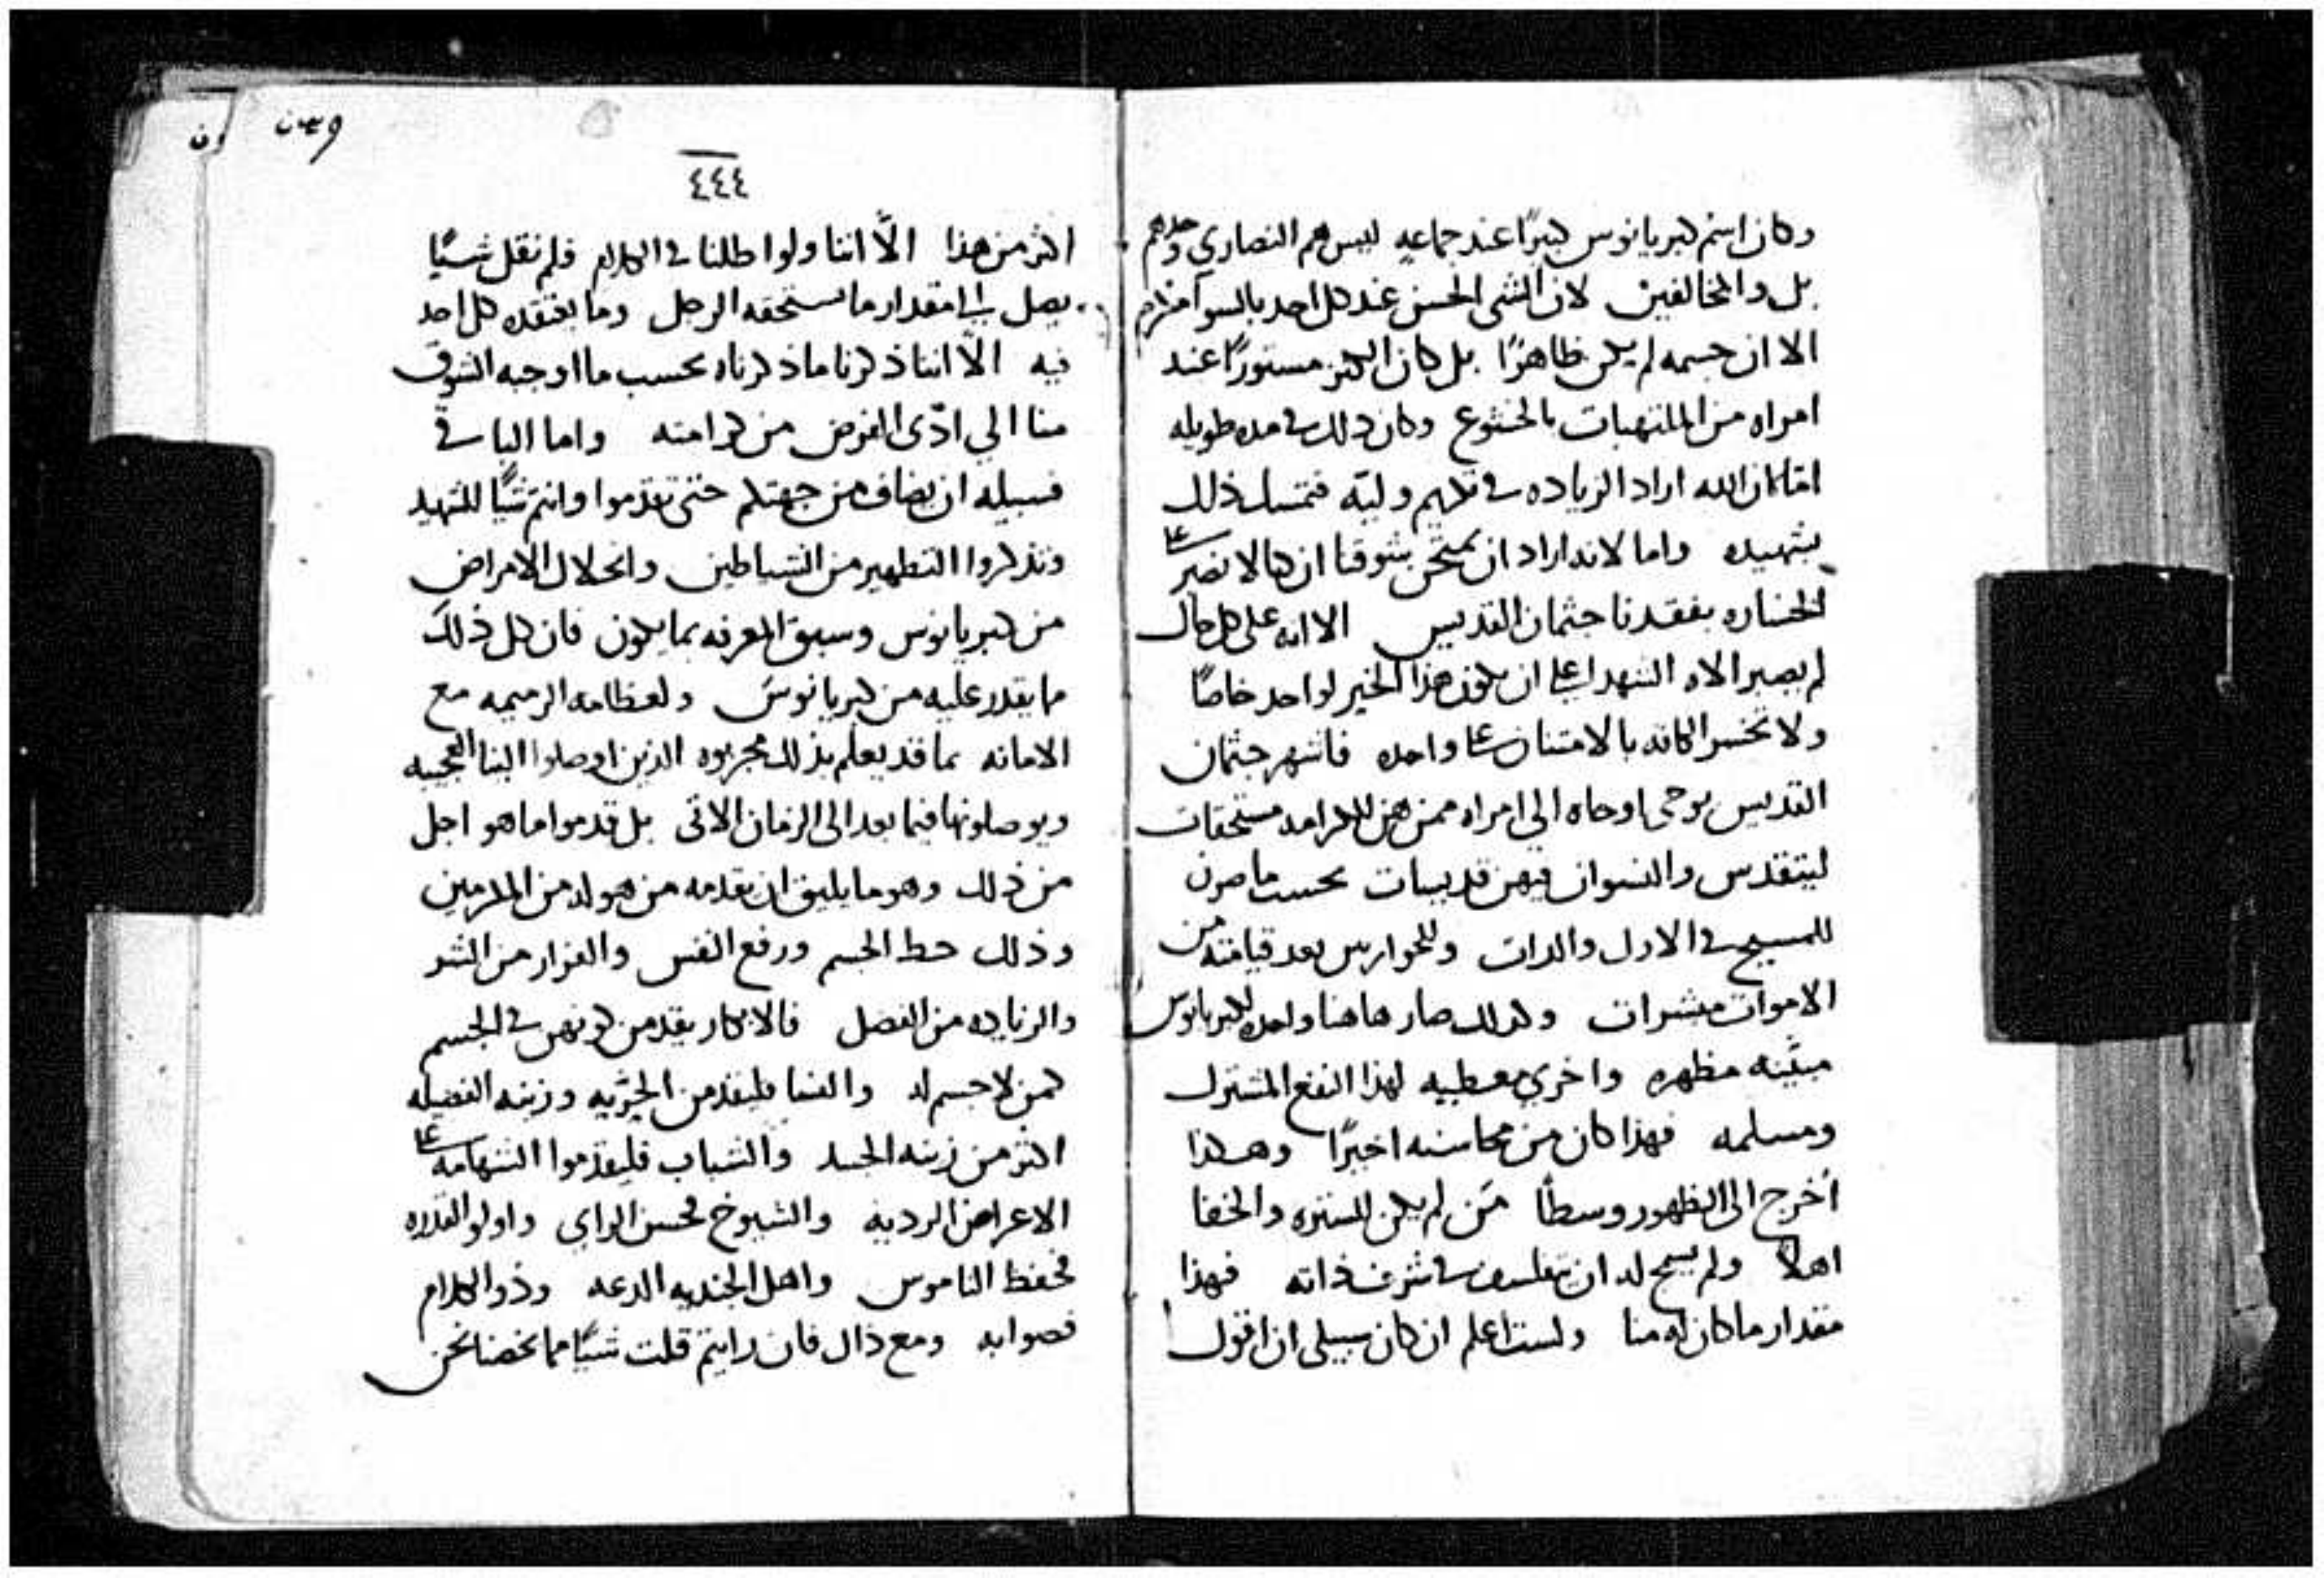 وكان اسم كبريانوس كبيرًا عند جماعه ليس هم النصاري وحدهم
بل والمخالفين لان الشي الحسن عند كل احد بالسوا مكرم
الا ان جسمه لم يكن ظاهرًا بل كان الكنز مستورًا عند
امراه من الملتهبات بالخشوع وكان ذلك في مده طويله
اما لان الله اراد الزياده في تكريم وليه فتمسك ذلك
بشهيده واما لانه اراد ان يمتحن شوقنا ان كنا لا نصبر على
الخساره بفقدنا جثمان القديس الا انه على كل حال
لم يصبر الاه الشهدا على ان يكون هذا الخير لواحد خاصًا
ولا تخسر الكافه بالامتنان على واحده فاشهر جثمان
القديس بوحى اوحاه الي امراه ممن هن للكرامه مستحقات
ليتقدس والنسوان فيهن قديسات بحسب ما صرن
للمسيح في الاول والدات وللحواريين بعد قيامته من
الاموات مبشرات وكذلك صار هاهنا واحده لكبريانوس
مبينه مظهره واخري معطيه لهذا النفع المشترك
ومسلمه فهذا كان من محاسنه اخيرًا وهكذا
اخرج الى الظهور وسطًا من لم يكن للستره والخفا
اهلاً ولم يسمح له ان يتفلسف في شرف ذاته فهذا
مقدار ما كان له منا ولست اعلم ان كان سبيلى ان اقول
٤٤٤
اكثر من هذا الّا اننا ولو اطلنا في الكلام فلم نقل شيًا
يصل الي مقدار ما يستحقه الرجل وما يعتقده كل احد
فيه الّا اننا ذكرنا ما ذكرناه بحسب ما اوجبه الشوق
منا الي ادّى الفرض من كرامته واما الباقي
فسبيله ان يضاف من جهتكم حتى تقدموا وانتم شيًا للشهيد
وتذكروا التطهير من الشياطين وانحلال الامراض
من كبريانوس وسبق المعرفه بما يكون فان كل ذلك
مما يقدر عليه من كبريانوس ولعظامه الرميمه مع
الامانه بما قد يعلم بذلك مجربوه الذين اوصلوا الينا العجيبه
ويوصلونها فيما بعد الى الزمان الاتى بل قدموا ما هو اجل
من ذلك وهو ما يليق ان يقدمه من هو له من المكرمين
وذلك حط الجسم ورفع النفس والفرار من الشر
والزياده من الفضل فالابكار يقدمن كونهن في الجسم
كمن لا جسم له والنسا فليقدمن الحريه وزينه الفضيله
اكثر من زينه الجسد والشباب فليقدموا الشهامه على
الاعراض الرديه والشيوخ محسن الراي واولو القدره
محفظ الناموس واهل الجنديه الدعه وذو الكلام
فصوابه ومع ذال فان رايتم قلت شيًا مما يخصنا نحن